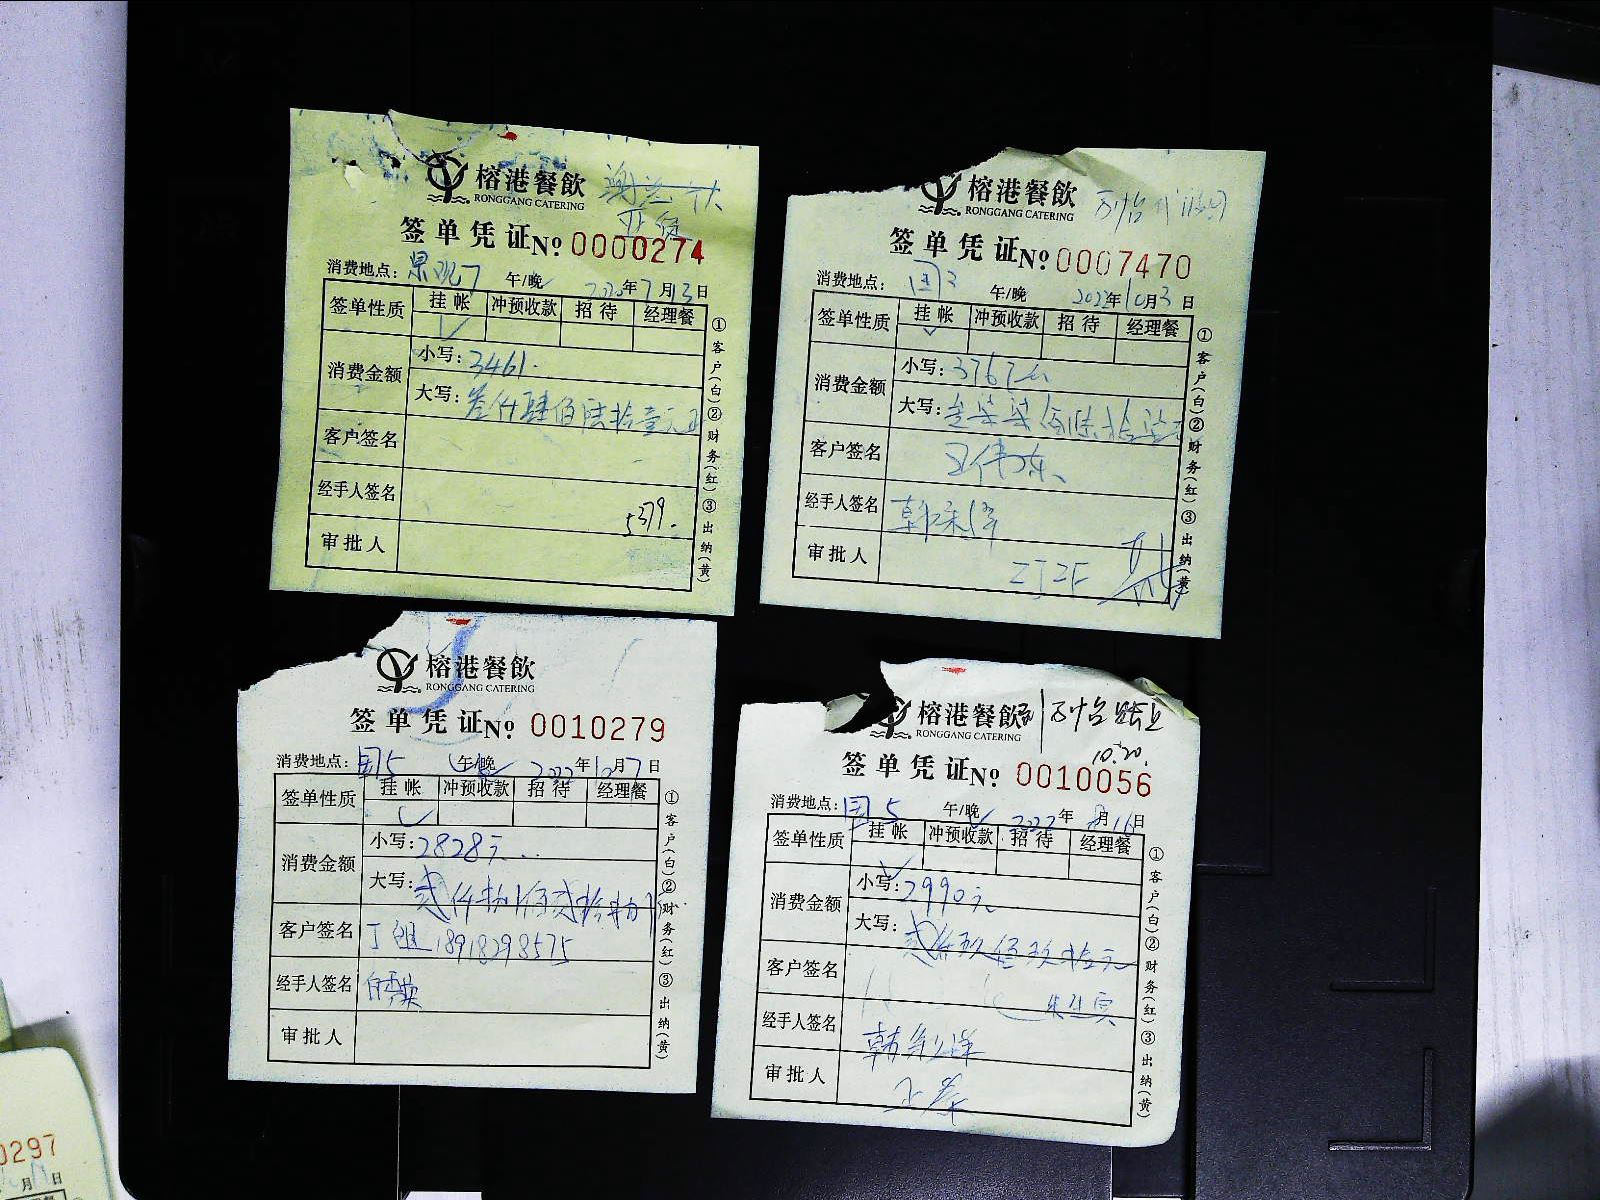 榕港餐飲
RONGGANG CATERING
签单凭证 No 0000274
消费地点: 景观7 午/晚 2020年7月13日
签单性质 挂帐 冲预收款 招待 经理餐
消费金额 小写: 3461.
大写: 叁仟肆佰陆拾壹元正
客户签名
经手人签名
5379.
审批人
①客户(白)②财务(红)③出纳(黄)
榕港餐飲
RONGGANG CATERING
签单凭证 No 0007470
消费地点: 国3 午/晚 2022年10月3日
签单性质 挂帐 冲预收款 招待 经理餐
消费金额 小写: 3767元
大写:
客户签名 王伟东
经手人签名
审批人
①客户(白)②财务(红)③出纳(黄)
榕港餐飲
RONGGANG CATERING
签单凭证 No 0010279
消费地点: 国5 午/晚 2022年10月7日
签单性质 挂帐 冲预收款 招待 经理餐
消费金额 小写: 2828元
大写: 贰仟捌佰贰拾捌
客户签名 18918298575
经手人签名
审批人
①客户(白)②财务(红)③出纳(黄)
榕港餐飲
RONGGANG CATERING
10.20.
签单凭证 No 0010056
消费地点: 国5 午/晚 2022年8月16日
签单性质 挂帐 冲预收款 招待 经理餐
消费金额 小写: 2990元
大写: 贰仟玖佰玖拾元
客户签名
经手人签名
审批人
①客户(白)②财务(红)③出纳(黄)
0297
月 日